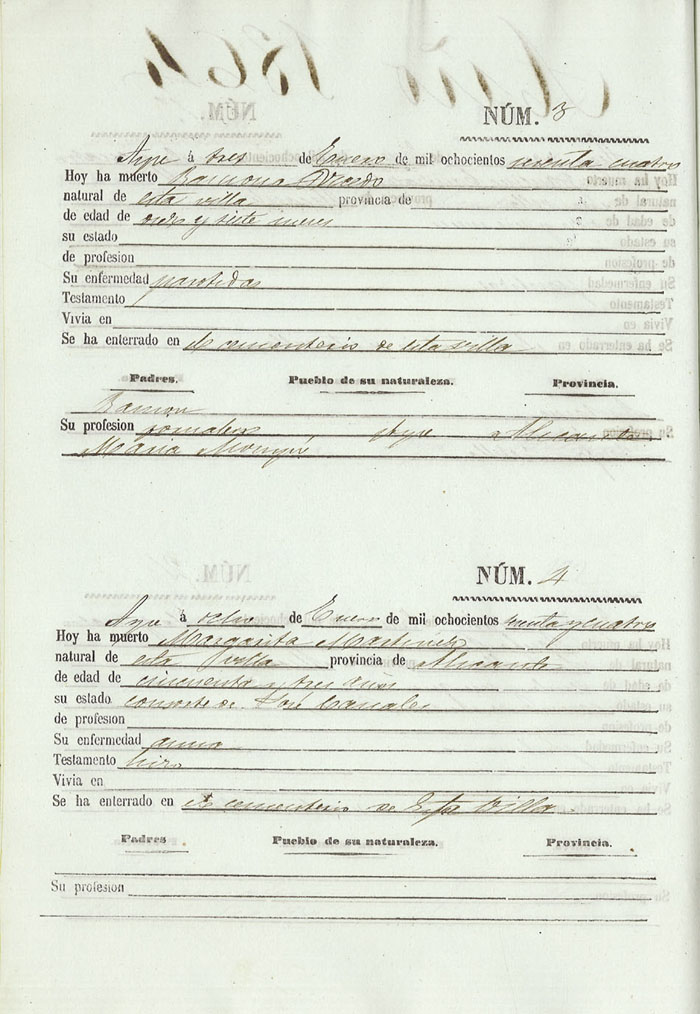 Año 1864
NÚM. 3
Aspe á tres de Enero de mil ochocientos sesenta cuatro
Hoy ha muerto Ramona
natural de esta villa provincia de
de edad de y siete meses
su estado
de profesion
Su enfermedad parotidas
Testamento
Vivia en
Se ha enterrado en el cementerio de esta villa
Padres. Pueblo de su naturaleza. Provincia.
Ramon
Su profesion jornalero Aspe Alicante
Maria
NÚM. 4
Aspe á ocho de Enero de mil ochocientos sesenta y cuatro
Hoy ha muerto Margarita Martinez
natural de esta Villa provincia de Alicante
de edad de cincuenta y tres años
su estado consorte de José Canales
de profesion
Su enfermedad asma
Testamento hizo
Vivia en
Se ha enterrado en el cementerio de Esta Villa
Padres Pueblo de su naturaleza. Provincia.
Su profesion